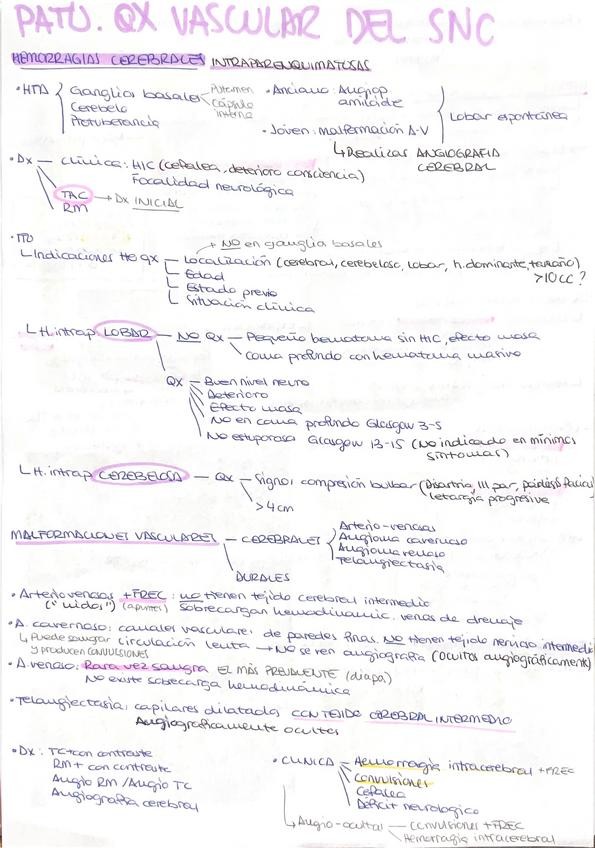 PATO. QX VASCULAR DEL SNC
HEMORRAGIAS CEREBRALES INTRAPARENQUIMATOSAS
• HTA { Ganglios basales - Putamen
cápsula interna
Cerebelo
Protuberancia
• Anciano: Angiop. amiloide
• Joven: malformación A-V } Lobar espontánea
↳ Realizar ANGIOGRAFIA CEREBRAL
• Dx — Clínica: HIC (cefalea, deterioro consciencia)
Focalidad neurológica
TAC → Dx INICIAL
RM
• TTO
→ NO en ganglios basales
Indicaciones tto qx — Localización (cerebral, cerebeloso, lobar, h. dominante, tamaño)
>10cc?
Edad
Estado previo
Situación clínica
H. intrap LOBAR — NO Qx — Pequeño hematoma sin HIC, efecto masa
Coma profundo con hematoma masivo
QX — Buen nivel neuro
Deterioro
Efecto masa
No en coma profundo Glasgow 3-5
No estuporosa Glasgow 13-15 (No indicado en mínimos síntomas)
H. intrap CEREBELOSA — Qx — Signos compresión bulbar (Disartria, III par, parálisis facial, letargia progresiva
>4cm
MALFORMACIONES VASCULARES — CEREBRALES { Arterio-venosas
Angioma cavernoso
Angioma venoso
Telangiectasia
DURALES
• Arteriovenosas +FREC: no tienen tejido cerebral intermedio
("nidos") (apuntes) sobrecargan hemodinamic. venas de drenaje
• A. cavernoso: canales vasculares de paredes finas. NO tienen tejido nervioso intermedio
↳ Puede sangrar y producen CONVULSIONES
circulación lenta → No se ven angiografía (ocultos angiográficamente)
• A. venoso: Rara vez sangra EL MÁS PREVALENTE (diapo)
No existe sobrecarga hemodinámica
• Telangiectasia: capilares dilatados CON TEJIDO CEREBRAL INTERMEDIO
Angiograficamente ocultos
• Dx: TC + con contraste
RM + con contraste
Angio RM / Angio TC
Angiografía cerebral
• CLINICA — Hemorragia intracerebral +FREC
Convulsiones
Cefalea
Déficit neurologico
↳ Angio-ocultas — convulsiones +FREC
Hemorragia intracerebral